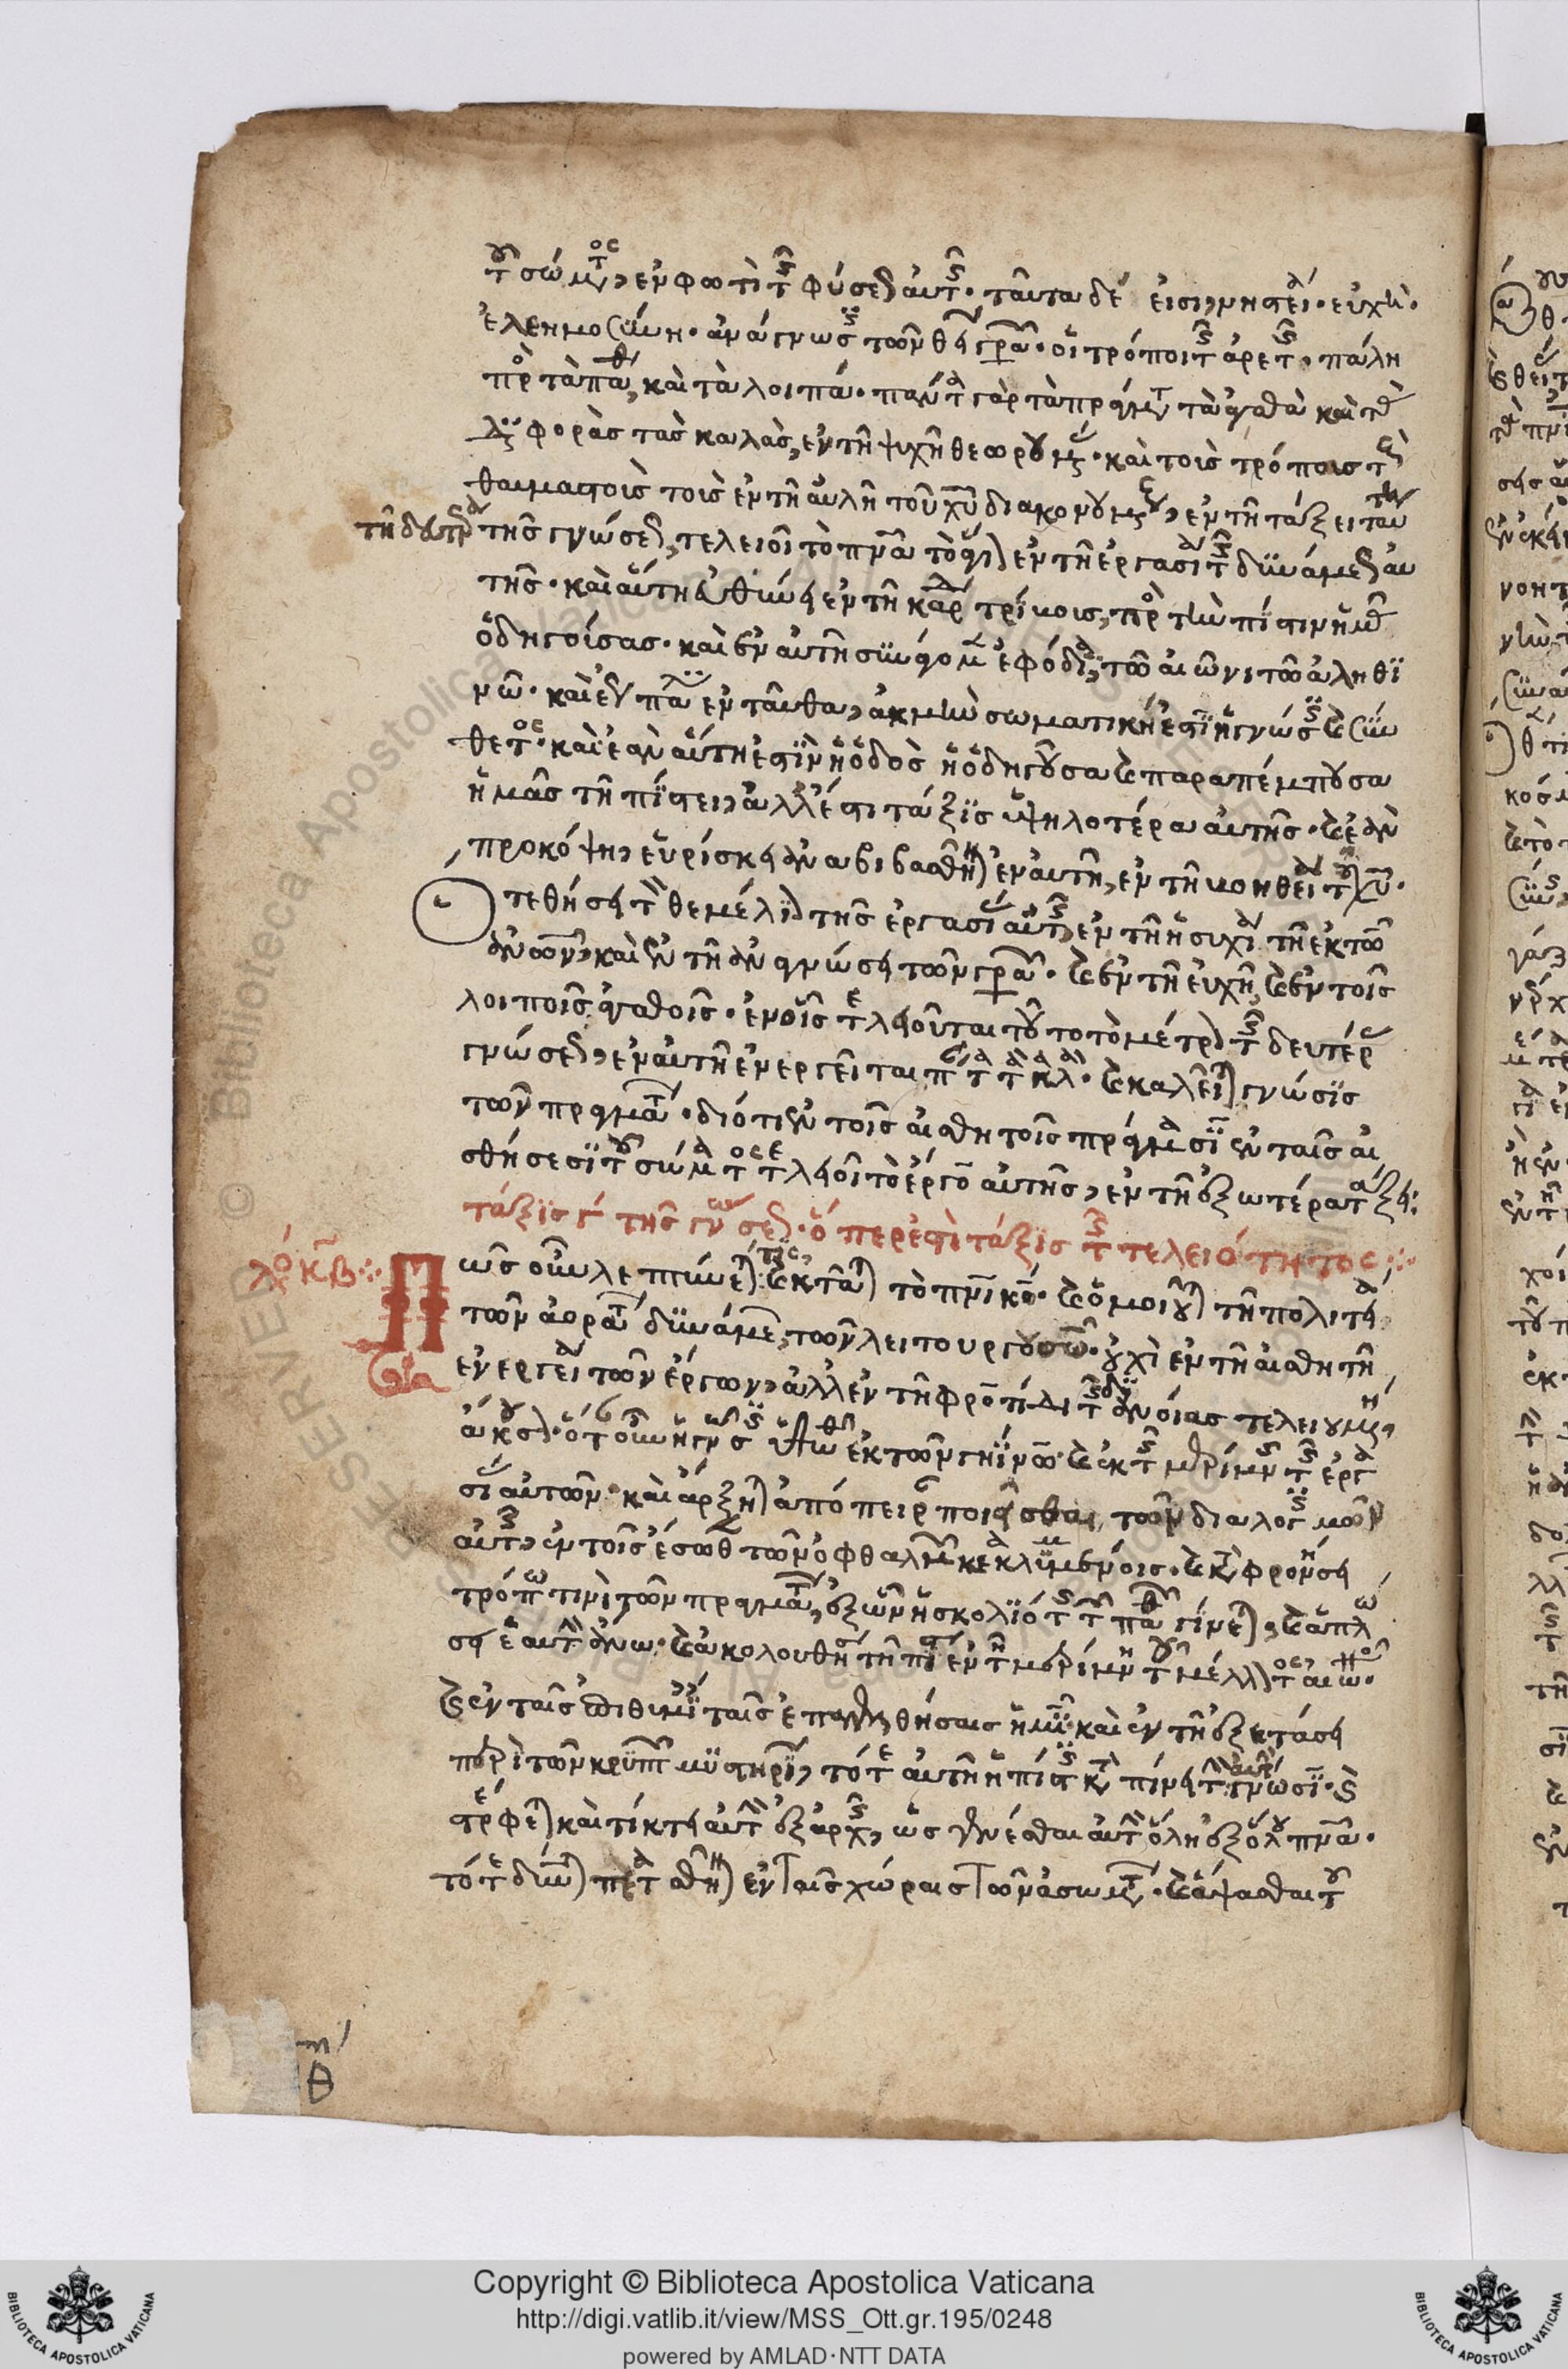 τοῦ σώματος, ἐν φωτὶ τῆς φύσεως αὐτῆς· ταῦτα δέ εἰσι, νηστεία· εὐχή·
ἐλεημοσύνη· ἀνάγνωσις τῶν θείων γραφῶν· οἱ τρόποι τῆς ἀρετῆς· πάλη
πρὸς τὰ πάθη, καὶ τὰ λοιπά· πάντα γὰρ τὰ πράγματα τὰ ἀγαθὰ καὶ τὰς
διαφορὰς τὰς καλὰς, ἐν τῇ ψυχῇ θεωρουμένας· καὶ τοῖς τρόποις τοῖς
θαυμαστοῖς τοῖς ἐν τῇ αὐλῇ τοῦ χυ διακονουμένοις, ἐν τῇ τάξει ταύτῃ
τῇ δευτέρᾳ τῆς γνώσεως, τελειοῖ τὸ πνα τὸ ἅγιον ἐν τῇ ἐργασίᾳ τῆς δυνάμεως αὐ
τῆς· καὶ αὕτη εὐθύνει ἐν τῇ καρδίᾳ τρίβους, πρὸς τὴν πίστιν ἡμᾶς
ὁδηγούσας· καὶ ἐν αὐτῇ συνάγομεν ἐφόδια, τῷ αἰῶνι τῷ ἀληθι
νῷ· καὶ ἕως πάλιν ἐνταῦθα, ἀκμὴν σωματική ἐστιν ἡ γνῶσις καὶ σύν
θετος· καὶ ἐὰν αὕτη ἐστὶν ἡ ὁδὸς ἡ ὁδηγοῦσα καὶ παραπέμπουσα
ἡμᾶς τῇ πίστει, ἀλλ' ἔστι τάξις ὑψηλοτέρα αὐτῆς· καὶ ἐὰν
προκόψῃ, εὑρίσκει ἀναβιβασθῆναι ἐν αὐτῇ, ἐν τῇ βοηθείᾳ τοῦ χυ·
ὅτε θήσει τὸν θεμέλιον τῆς ἐργασίας αὐτῆς, ἐν τῇ ἡσυχίᾳ τῇ ἐκ τῶν
ἀνῶν, καὶ ἐν τῇ ἀναγνώσει τῶν γραφῶν· καὶ ἐν τῇ εὐχῇ, καὶ ἐν τοῖς
λοιποῖς ἀγαθοῖς· ἐν οἷς τελειοῦται τοῦτο τὸ μέτρον τῆς δευτέρας
γνώσεως, ἐν αὐτῇ ἐνεργεῖται πάντα τὰ καλά· καὶ καλεῖται γνῶσις
τῶν πραγμάτων· διότι ἐν τοῖς αἰσθητοῖς πράγμασιν ἐν ταῖς αἰ
σθήσεσι τοῦ σώματος τελειοῖ τὸ ἔργον αὐτῆς, ἐν τῇ ἐξωτέρᾳ τάξει:
τάξις γ΄ τῆς γνώσεως· ὅπερ ἐστὶ τάξις τῆς τελειότητος
λό κβ Πῶς οὖν λεπτύνεταί τις, καὶ κτᾶται τὸ πνικόν· καὶ ὁμοιοῦται τῇ πολιτείᾳ
τῶν ἀοράτων δυνάμεων, τῶν λειτουργουσῶν· οὐχὶ ἐν τῇ αἰσθητῇ
ἐνεργείᾳ τῶν ἔργων, ἀλλ' ἐν τῇ φροντίδι τῆς διανοίας τελειουμένῃ,
ἄκουσον· ὅταν οὖν ἡ γνῶσις ὑψωθῇ ἐκ τῶν γηίνων· καὶ ἐκ τῆς μερίμνης τῆς ἐργα
σίας αὐτῶν· καὶ ἄρξηται ἀπόπειραν ποιεῖσθαι τῶν διαλογισμῶν
αὐτῆς, ἐν τοῖς ἔσωθεν τῶν ὀφθαλμῶν κεκαλυμμένοις· καὶ καταφρονήσῃ
τρόπῳ τινὶ τῶν πραγμάτων, ἐξ ὧν ἡ σκολιότης τῶν παθῶν γίνεται, καὶ ἁπλώ
σῃ ἑαυτὴν ἄνω· καὶ ἀκολουθήσῃ τῇ πίστει ἐν τῇ μερίμνῃ τοῦ μέλλοντος αἰῶνος·
καὶ ἐν ταῖς ἐπιθυμίαις ταῖς ἐπαγγελθείσαις ἡμῖν· καὶ ἐν τῇ ἐξετάσει
περὶ τῶν κρυπτῶν μυστηρίων, τότε αὐτὴ ἡ πίστις καταπίνει τὴν γνῶσιν· καὶ
στρέφεται καὶ τίκτει αὐτὴν ἐξ ἀρχῆς, ὡς γενέσθαι αὐτὴν ὅλην ἐξ ὅλου πνα·
τότε δύναται πετασθῆναι ἐν ταῖς χώραις τῶν ἀσωμάτων· καὶ ἅψασθαι τοῦ
θ
Copyright © Biblioteca Apostolica Vaticana
http://digi.vatlib.it/view/MSS_Ott.gr.195/0248
powered by AMLAD·NTT DATA